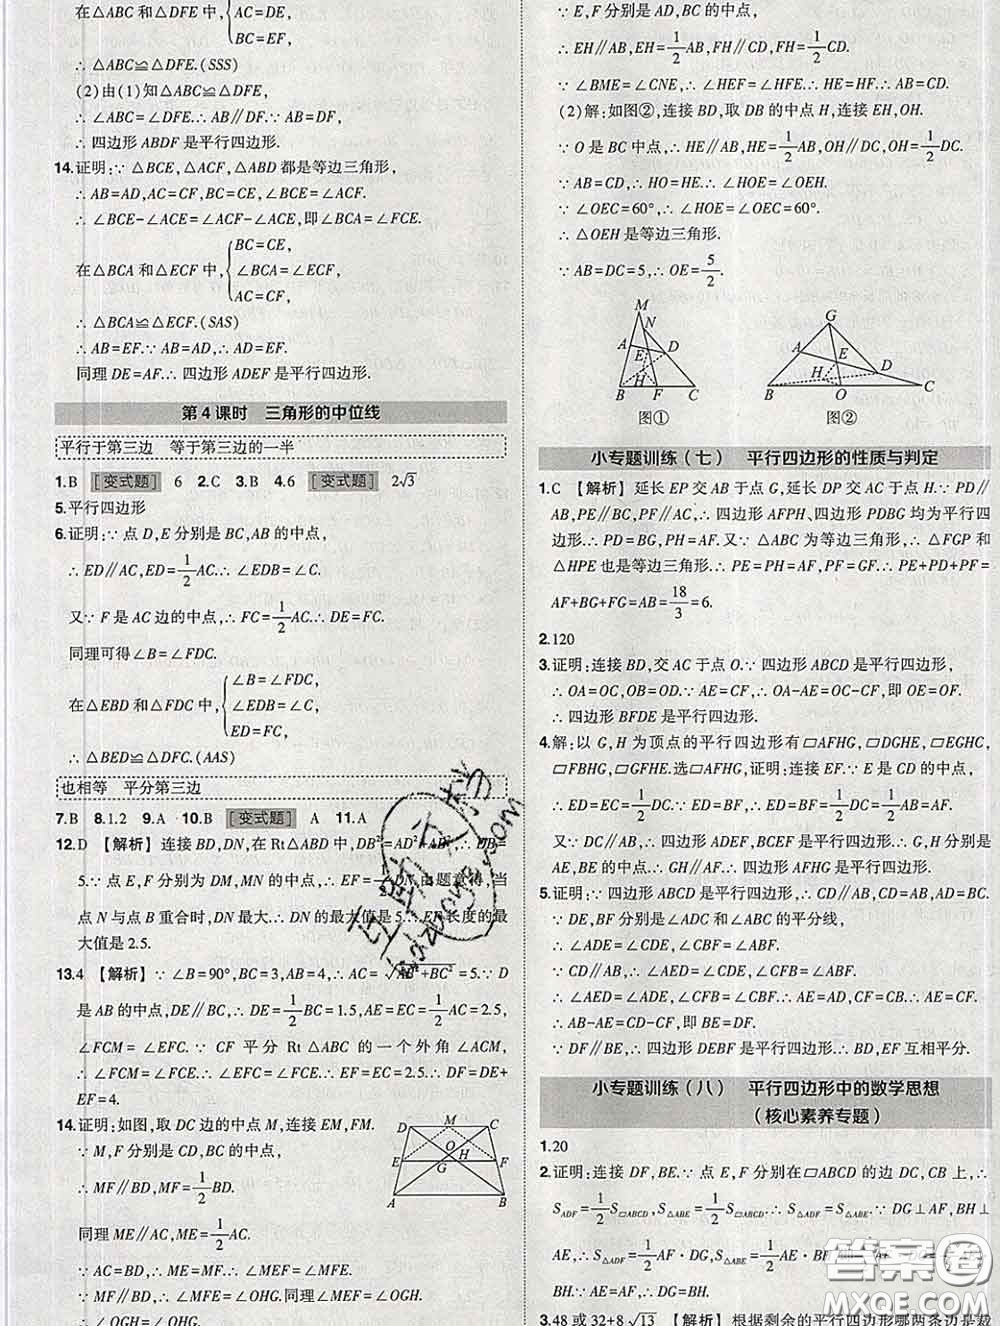 在△ABC 和△DFE 中,{AC=DE,
BC=EF,
∴△ABC≌△DFE.(SSS)
(2)由(1)知△ABC≌△DFE,
∴∠ABC=∠DFE.∴AB∥DF.∵AB=DF,
∴四边形 ABDF 是平行四边形.
14.证明:∵△BCE,△ACF,△ABD 都是等边三角形,
∴AB=AD,AC=CF,BC=CE,∠BCE=∠ACF.
∴∠BCE-∠ACE=∠ACF-∠ACE,即∠BCA=∠FCE.
BC=CE,
在△BCA 和△ECF 中,{∠BCA=∠ECF,
AC=CF,
∴△BCA≌△ECF.(SAS)
∴AB=EF.∵AB=AD,∴AD=EF.
同理 DE=AF.∴四边形 ADEF 是平行四边形.
第 4 课时 三角形的中位线
平行于第三边 等于第三边的一半
1.B [变式题] 6 2.C 3.B 4.6 [变式题] 2√3
5.平行四边形
6.证明:∵点 D,E 分别是 BC,AB 的中点,
∴ED∥AC,ED=1/2AC.∴∠EDB=∠C.
又∵F 是 AC 边的中点,∴FC=1/2AC.∴DE=FC.
同理可得∠B=∠FDC.
∠B=∠FDC,
在△EBD 和△FDC 中,{∠EDB=∠C,
ED=FC,
∴△BED≌△DFC.(AAS)
也相等 平分第三边
7.B 8.1.2 9.A 10.B [变式题] A 11.A
12.D 【解析】连接 BD,DN,在 Rt△ABD 中,DB²=AD²+AB²,∴DB=
5.∵点 E,F 分别为 DM,MN 的中点,∴EF=1/2DN.由题意得,当
点 N 与点 B 重合时,DN 最大.∴DN 的最大值是 5.∴EF 长度的最
大值是 2.5.
13.4 【解析】∵∠B=90°,BC=3,AB=4,∴AC=√AB²+BC²=5.∵D
是 AB 的中点,DE∥BC,∴DE=1/2BC=1.5,AE=EC=1/2AC=2.5,
∠FCM=∠EFC.∵CF 平分 Rt△ABC 的一个外角∠ACM,
∴∠FCM=∠FCE.∴∠EFC=∠FCE.∴EC=EF.∴DF=DE+
EF=4.
14.证明:如图,取 DC 边的中点 M,连接 EM,FM.
∵M,F 分别是 CD,BC 的中点,
∴MF∥BD,MF=1/2BD.
同理 ME∥AC,ME=1/2AC.
∵AC=BD,∴ME=MF.∴∠MEF=∠MFE.
∵MF∥BD,∴∠MFE=∠OHG.同理∠MEF=∠OGH.
∴∠OGH=∠OHG.∴OG=OH.
D M C
O
E G H F
A B
∵E,F 分别是 AD,BC 的中点,
∴EH∥AB,EH=1/2AB,FH∥CD,FH=1/2CD.
∵∠BME=∠CNE,∴∠HEF=∠HFE.∴HE=HF.∴AB=CD.
(2)解:如图②,连接 BD,取 DB 的中点 H,连接 EH,OH.
∵O 是 BC 中点,∴HE∥AB,HE=1/2AB,OH∥DC,OH=1/2DC.
∵AB=CD,∴HO=HE.∴∠HOE=∠OEH.
∵∠OEC=60°,∴∠HOE=∠OEC=60°.
∴△OEH 是等边三角形.
∵AB=DC=5,∴OE=5/2.
M
N
A
E D
H
B F C
图①
G
A
E
H D
B O C
图②
小专题训练(七) 平行四边形的性质与判定
1.C 【解析】延长 EP 交 AB 于点 G,延长 DP 交 AC 于点 H.∵PD∥
AB,PE∥BC,PF∥AC,∴四边形 AFPH、四边形 PDBG 均为平行四
边形.∴PD=BG,PH=AF.又∵△ABC 为等边三角形,∴△FGP 和
△HPE 也是等边三角形.∴PE=PH=AF,PF=GF.∴PE+PD+PF=
AF+BG+FG=AB=18/3=6.
2.120
3.证明:连接 BD,交 AC 于点 O.∵四边形 ABCD 是平行四边形,
∴OA=OC,OB=OD.∵AE=CF,∴OA-AE=OC-CF,即 OE=OF.
∴四边形 BFDE 是平行四边形.
4.解:以 G,H 为顶点的平行四边形有▱AFHG,▱DGHE,▱EGHC,
▱FBHG,▱GFHE.选▱AFHG,证明:连接 EF.∵E 是 CD 的中点,
∴ED=EC=1/2DC.∵AB=DC,AF=BF=1/2AB,∴ED=EC=BF=AF.
又∵DC∥AB,∴四边形 ADEF,BCEF 是平行四边形.∵G,H 分别是
AE,BE 的中点.∴GH∥AF.∴四边形 AFHG 是平行四边形.
5.证明:∵四边形 ABCD 是平行四边形,∴CD∥AB,CD=AB,AD=BC.
∵DE,BF 分别是∠ADC 和∠ABC 的平分线,
∴∠ADE=∠CDE,∠CBF=∠ABF.
∵CD∥AB,∴∠AED=∠CDE,∠CFB=∠ABF.
∴∠AED=∠ADE,∠CFB=∠CBF.∴AE=AD,CF=CB.∴AE=CF.
∴AB-AE=CD-CF,即 BE=DF.
∵DF∥BE,∴四边形 DEBF 是平行四边形.∴BD,EF 互相平分.
小专题训练(八) 平行四边形中的数学思想
(核心素养专题)
1.20
2.证明:连接 DF,BE.∵点 E,F 分别在▱ABCD 的边 DC,CB 上,∴
S△ADF=1/2S▱ABCD,S△ABE=1/2S▱ABCD.∴S△ADF=S△ABE.∵DG⊥AF,BH⊥
AE,∴S△ADF=1/2AF·DG,S△ABE=1/2AE·BH.
BH.∵AE=AF,∴DG=BH.
3.48 或 32+8√13 【解析】根据剩余的平行四边形哪两条边是裁
答案圈
MXQE.COM